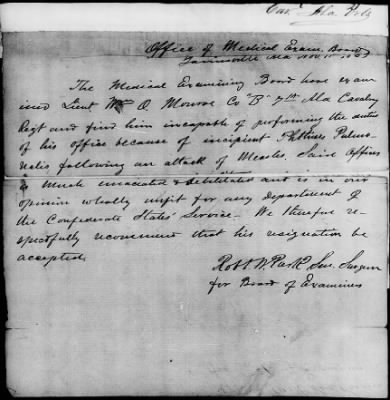 Office of Medical Exam. Board
The Medical Examining Board have exam
ined Lieut Wm O. Monroe Co "B" 7th Ala Cavalry
Regt and find him incapable of performing the duties
of his office because of incipient Phthisis Pulmo
nalis following an attack of Measles. Said Officer
is much emaciated & debilitated and is in our
opinion wholly unfit for any Department of
the Confederate States' Service. We therefore re-
spectfully recommend that his resignation be
accepted
Robt W. Park Sen. Surgeon
for Board of Examiners